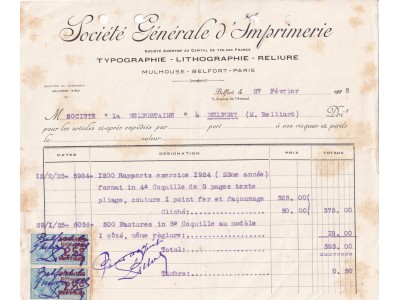 Société Générale d'Imprimerie
SOCIÉTÉ ANONYME AU CAPITAL DE FRANCS
TYPOGRAPHIE - LITHOGRAPHIE - RELIURE
MULHOUSE - BELFORT - PARIS
Belfort, le 27 Février 5
M SOCIETE "la BELFORTAINE" à BELFORT (M. Belliard) Doit
pour les articles ci-après expédiés par port à vos risques et périls
valeur
DATES DÉSIGNATION TOTAUX
12/2/25- 5984- 1200 Rapports exercice 1924 (23me année)
format in 4° Coquille de 8 pages texte
pliage, couture 1 point fer et façonnage 325.00
Cliché: 50.00 375.00
29/1/25- 6056- 500 Factures in 8° Coquille au modèle
1 côté, même réglure: 18.00
Total: 393.00
Timbre: 0.50